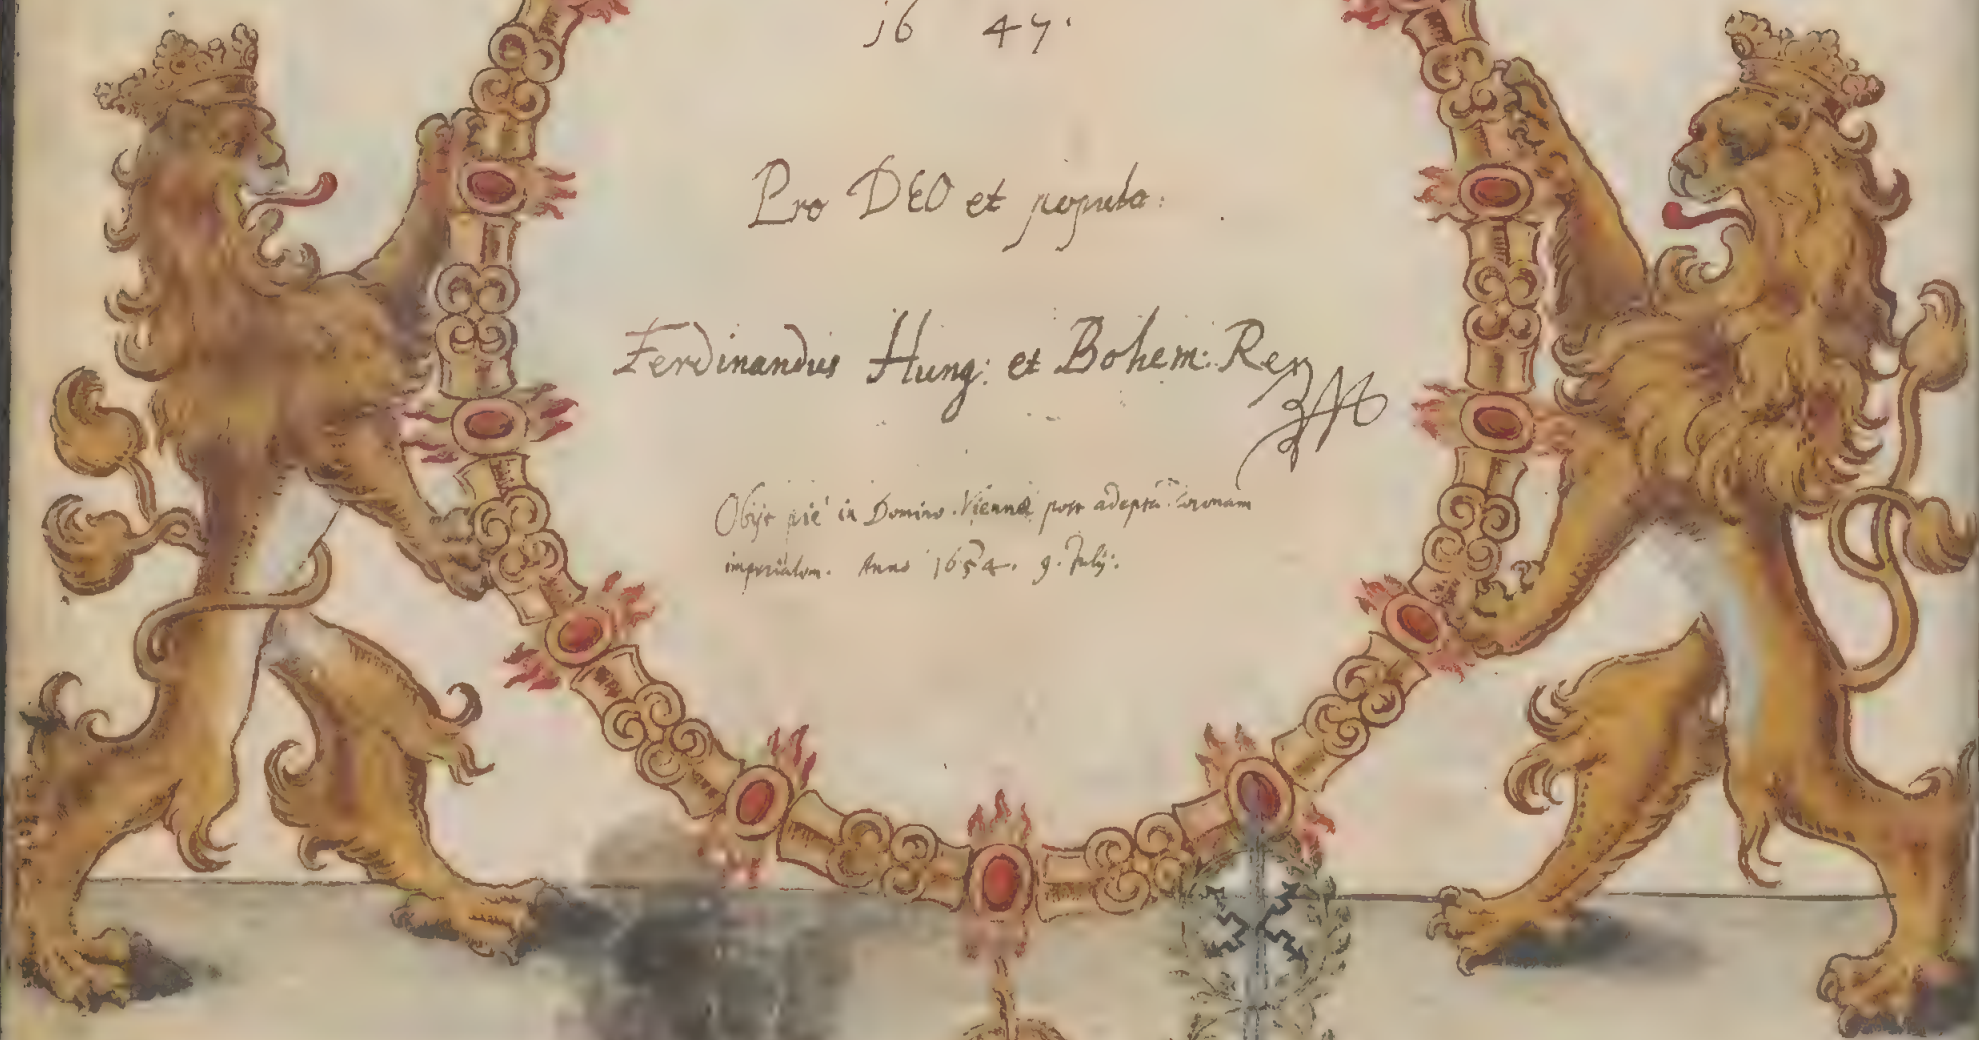 16 47.
Pro DEO et populo:
Ferdinandus Hung: et Bohem: Rex
Obijt pié in Domino Viennæ post adeptã Coronam
imperialem. Anno 1654. 9. Julij: